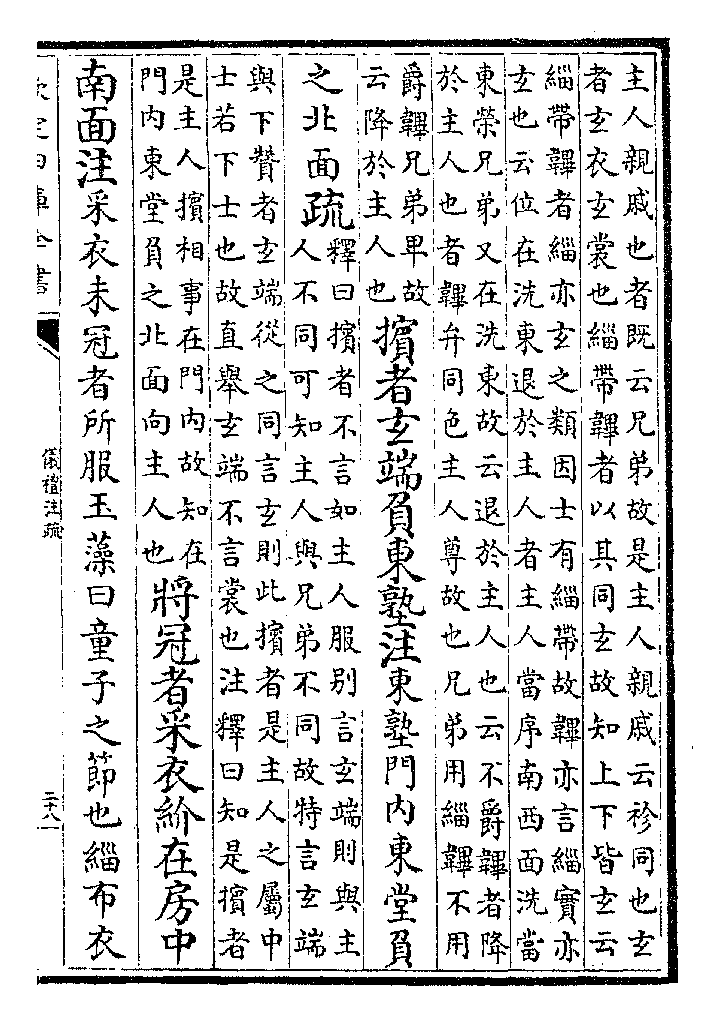 主人親戚也者既云兄弟故是主人親戚云袗同也玄
者玄衣玄裳也緇帶韠者以其同玄故知上下皆玄云
緇帶韠者緇亦玄之類因士有緇帶故韠亦言緇實亦
玄也云位在洗東退於主人者主人當序南西面洗當
東榮兄弟又在洗東故云退於主人也云不爵韠者降
於主人也者韠弁同色主人尊故也兄弟用緇韠不用
爵韠兄弟卑故
云降於主人也
擯者玄端負東塾注東塾門內東堂負
之北面疏
釋曰擯者不言如主人服别言玄端則與主
人不同可知主人與兄弟不同故特言玄端
與下贊者玄端從之同言玄則此擯者是主人之屬中
士若下士也故直舉玄端不言裳也注釋曰知是擯者
是主人擯相事在門內故知在
門內東堂負之北面向主人也
將冠者采衣紒在房中
南面注采衣未冠者所服玉藻曰童子之節也緇布衣
欽定四庫全書
儀禮注疏
二十八